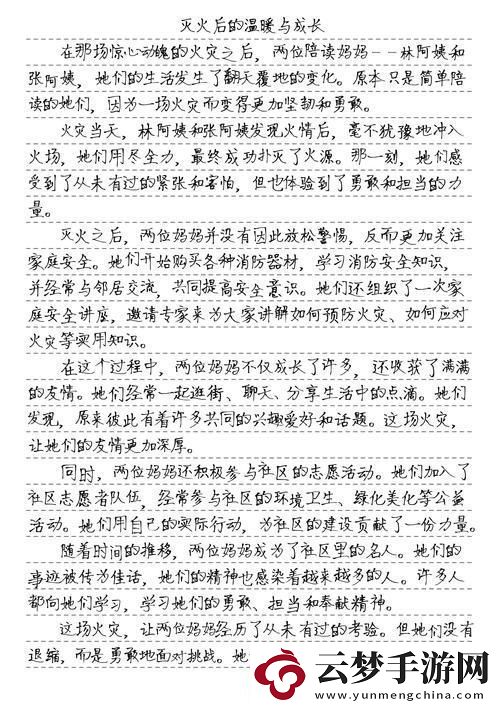 灭火后的温暖与成长
在那场惊心动魄的火灾之后，两位陪读妈妈--林阿姨和
张阿姨，她们的生活发生了翻天覆地的变化。原本只是简单陪
读的她们，因为一场火灾而变得更加坚韧和勇敢。
火灾当天，林阿姨和张阿姨发现火情后，毫不犹豫地冲入
火场，她们用尽全力，最终成功扑灭了火源。那一刻，她们感
受到了从未有过的紧张和害怕，但也体验到了勇敢和担当的力
量。
灭火之后，两位妈妈并没有因此放松警惕，反而更加关注
家庭安全。她们开始购买各种消防器材，学习消防安全知识，
并经常与邻居交流，共同提高安全意识。她们还组织了一次家
庭安全讲座，邀请专家来为大家讲解如何预防火灾、如何应对
火灾等实用知识。
在这个过程中，两位妈妈不仅成长了许多，还收获了满满
的友情。她们经常一起逛街、聊天、分享生活中的点滴。她们
发现，原来彼此有着许多共同的兴趣爱好和话题。这场火灾，
让她们的友情更加深厚。
同时，两位妈妈还积极参与社区的志愿活动。她们加入了
社区志愿者队伍，经常参与社区的环境卫生、绿化美化等公益
活动。她们用自己的实际行动，为社区的建设贡献了一份力量。
随着时间的推移，两位妈妈成为了社区里的名人。她们的
事迹被传为佳话，她们的精神也感染着越来越多的人。许多人
都向她们学习，学习她们的勇敢、担当和奉献精神。
这场火灾，让两位妈妈经历了从未有过的考验。但她们没有
退缩，而是勇敢地面对挑战。她
云梦手游网
www.yunmengchina.com